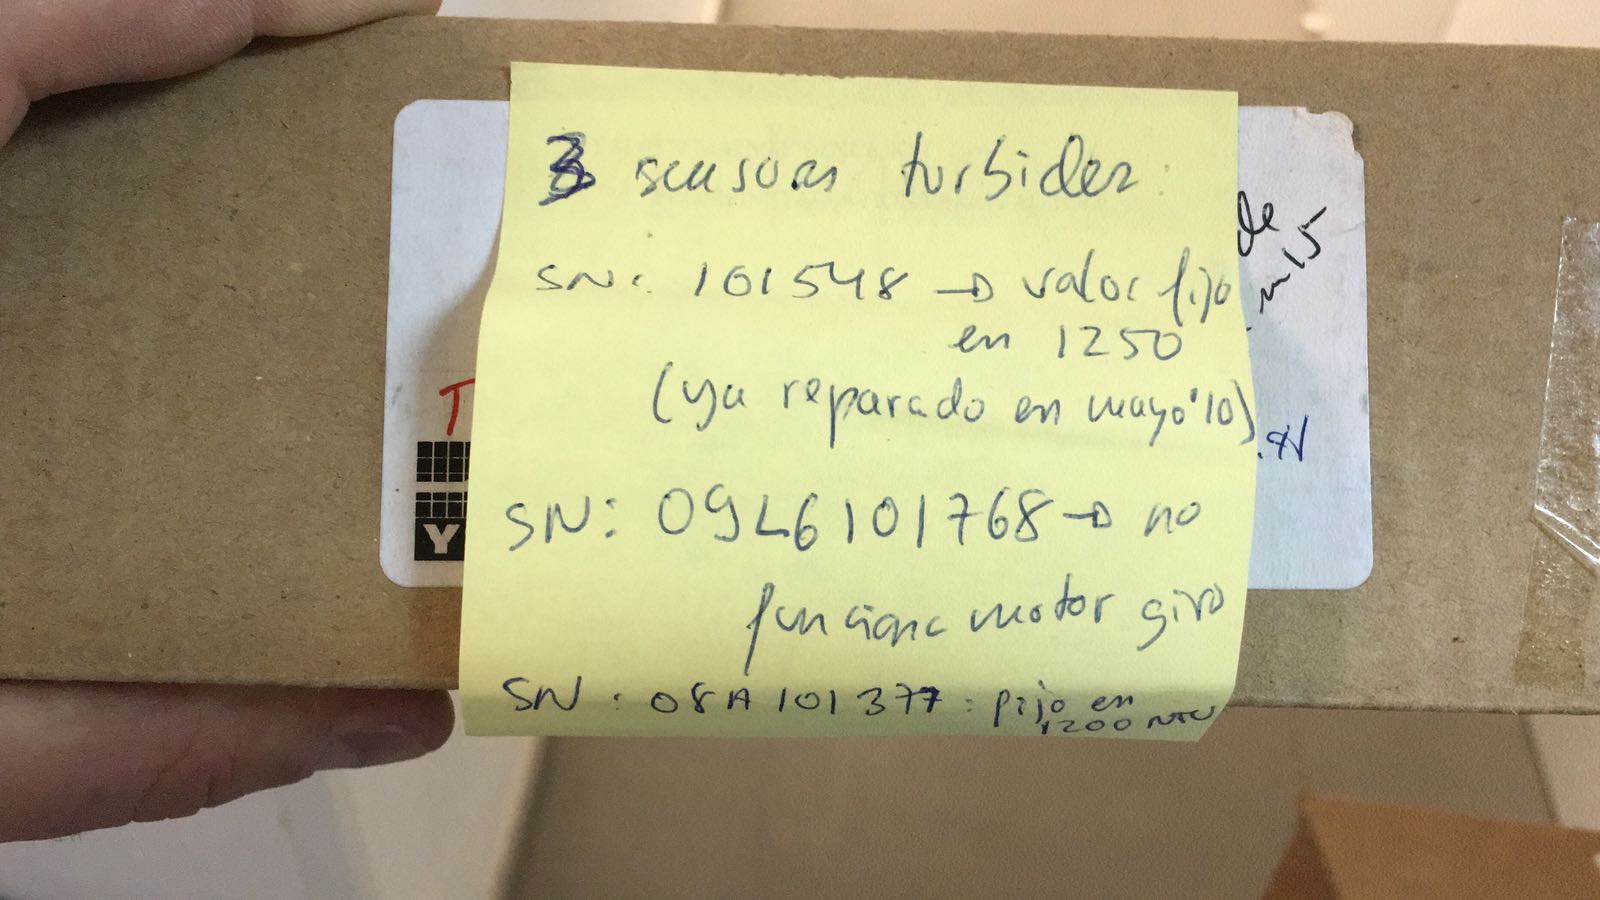 3 sensores turbidez:
SN: 101548 → valor fijo
en 1250
(ya reparado en mayo'10)
SN: 09L6101768 → no
funciona motor giro
SN: 08A101377: fijo en
1200 NTU
de
15
T
Y